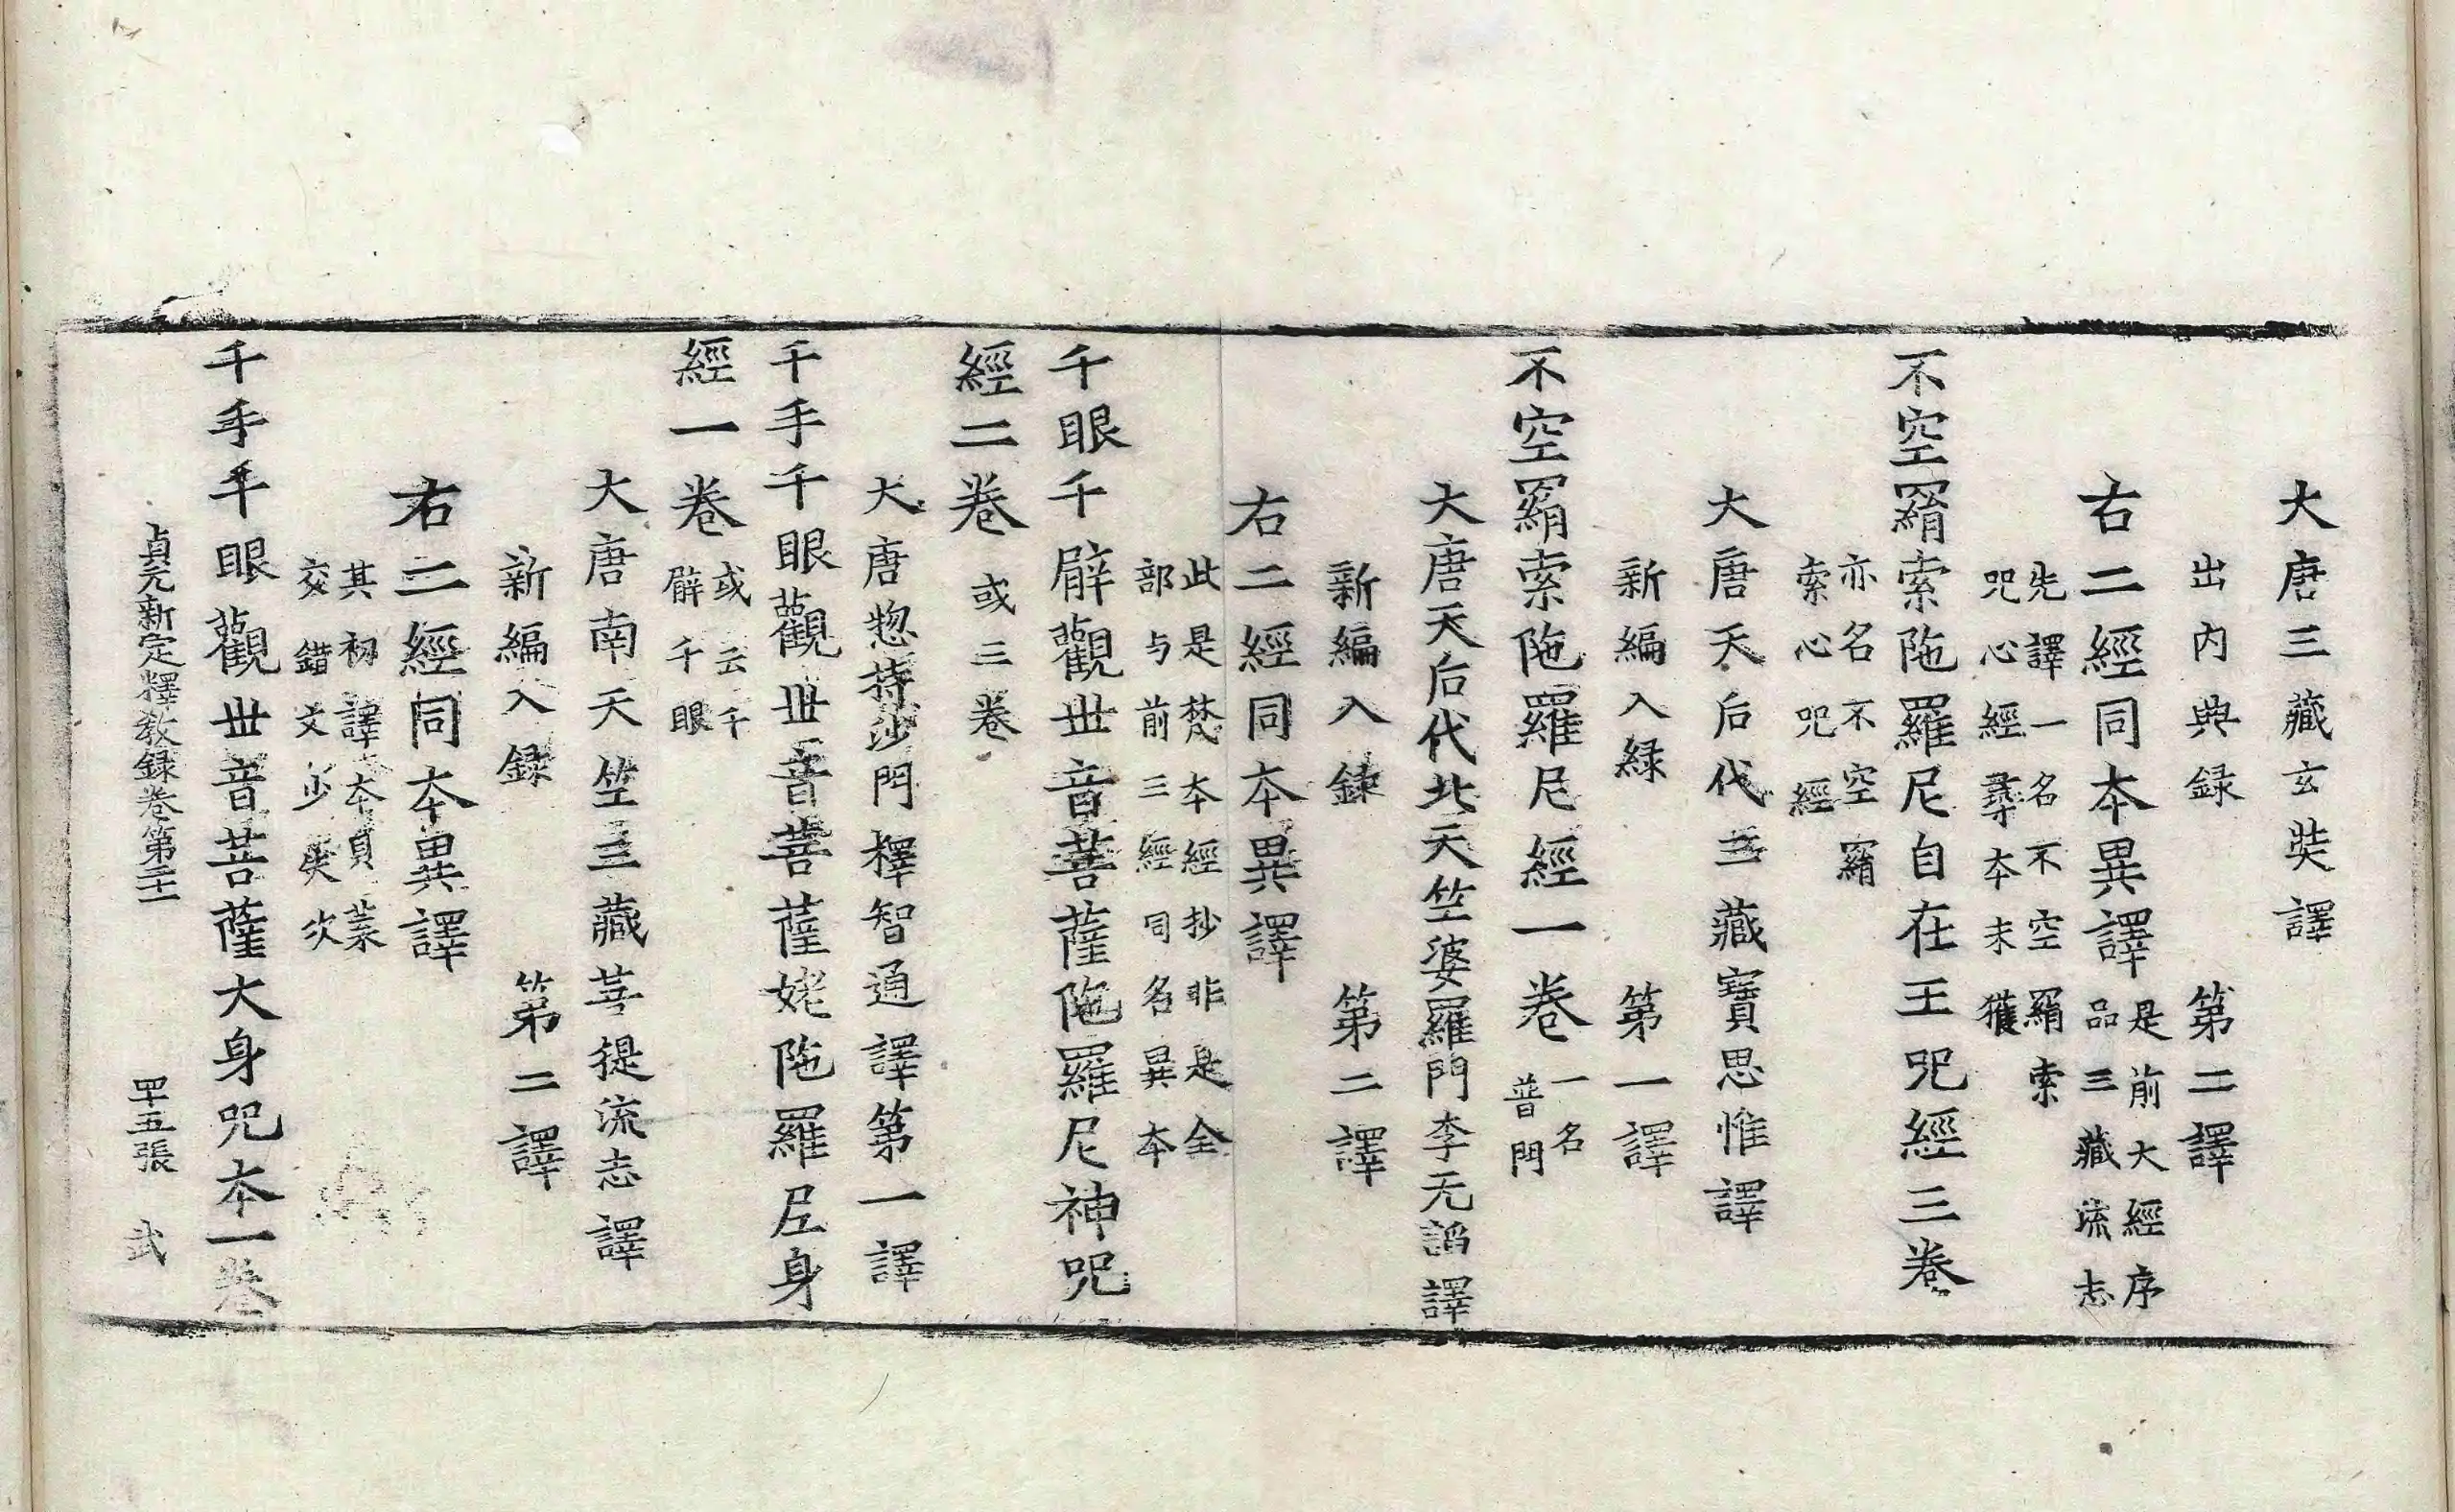 大唐三藏玄奘譯
出内典録 第二譯
右二經同本異譯 是前大經序
品三藏流志
先譯一名不空羂索
呪心經尋本未獲
不空羂索陁羅尼自在王呪經三卷
亦名不空羂
索心呪經
大唐天后代三藏寶思惟譯
新編入緑 第一譯
不空羂索陁羅尼經一卷 一名
普門
大唐天后代北天竺婆羅門李无謟譯
新編入録 第二譯
右二經同本異譯
此是梵本經抄非是全
部与前三經同名異本
千眼千臂觀世音菩薩陁羅尼神呪
經二卷 或三卷
大唐惣持沙門釋智通譯第一譯
千手千眼觀世音菩薩姥陁羅尼身
經一卷 或云千
臂千眼
大唐南天竺三藏菩提流志譯
新編入録 第二譯
右二經同本異譯
其初譯本負葉
交錯文少失次
千手千眼觀世音菩薩大身呪本一卷
貞元新定釋教録卷第二十二 四十五張 武